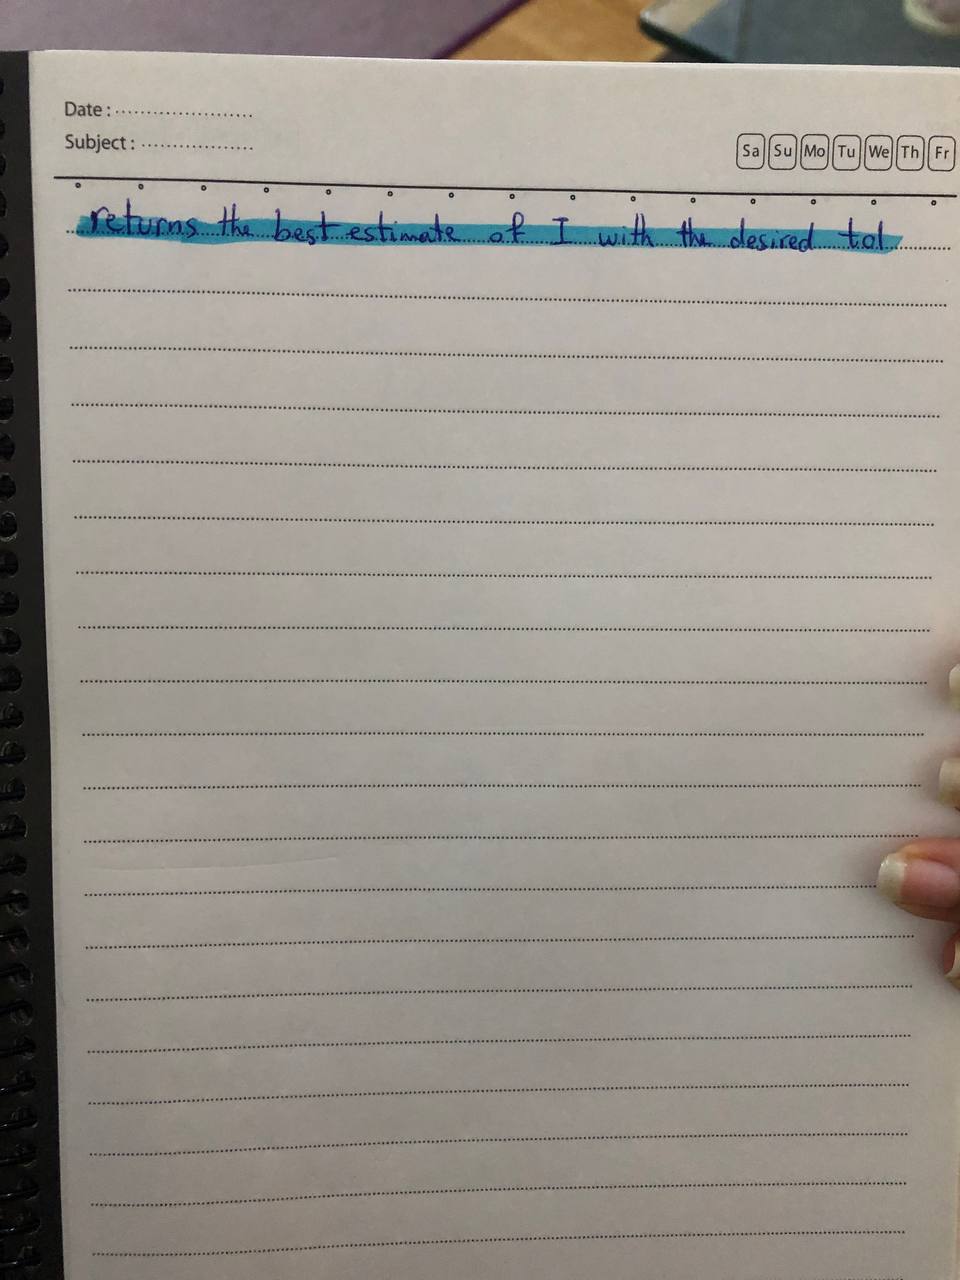 Date : ......................
Subject : ..................
Sa Su Mo Tu We Th Fr
returns the best estimate of I with the desired tol